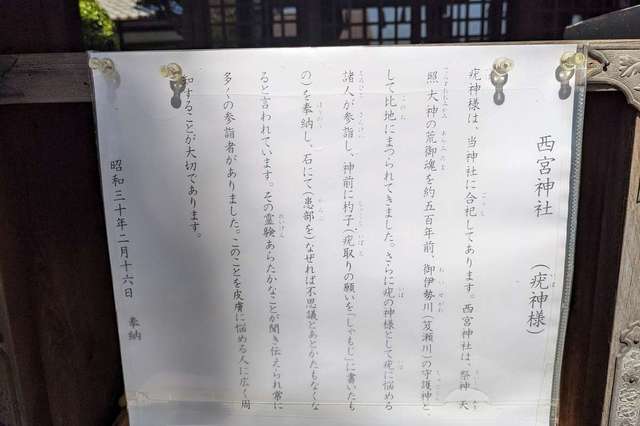 西宮神社 (疣神様)
疣神様は、当神社に合祀してあります。西宮神社は、祭神 天
照大神の荒御魂を約五百年前、御伊勢川(笈瀬川)の守護神と
して比地にまつられてきました。さらに疣の神様として疣に悩める
諸人が参詣し、神前に杓子(疣取りの願いを「しゃもじ」に書いたも
の)を奉納し、石にて(患部を)なぜれば不思議とあとかたもなくな
ると言われています。その霊験あらたかなことが聞き伝えられ常に
多くの参詣者がありました。このことを皮膚に悩める人に広く周
知することが大切であります。
昭和三十年二月十六日 奉納